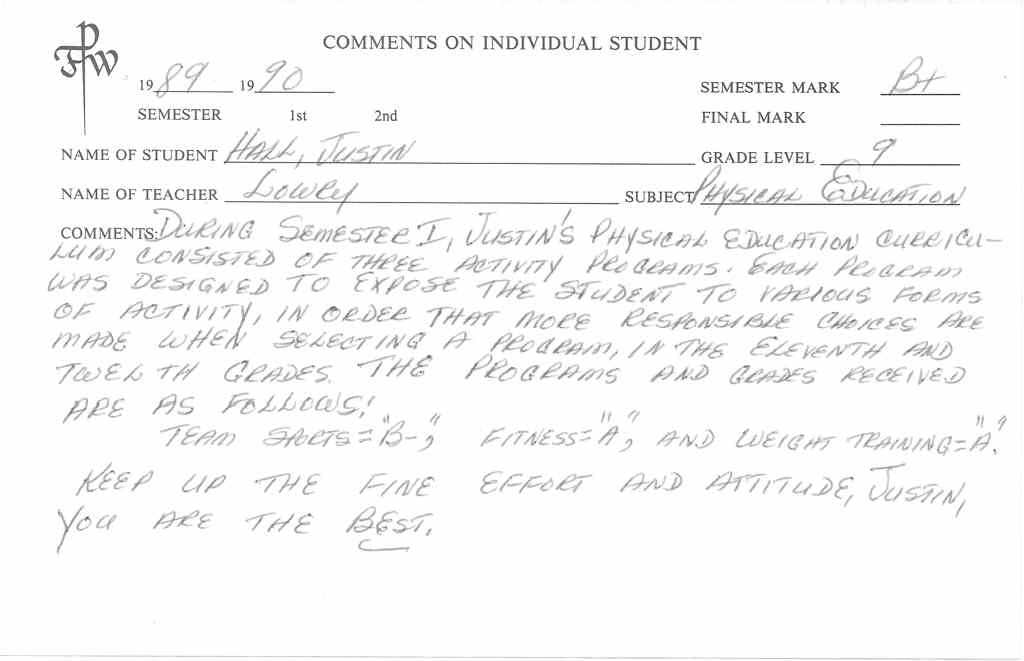 FPW
COMMENTS ON INDIVIDUAL STUDENT
1989 1990 SEMESTER MARK B+
SEMESTER 1st 2nd FINAL MARK
NAME OF STUDENT HALL, JUSTIN GRADE LEVEL 9
NAME OF TEACHER LOWRY SUBJECT PHYSICAL EDUCATION
COMMENTS: DURING SEMESTER I, JUSTIN'S PHYSICAL EDUCATION CURRICU-
LUM CONSISTED OF THREE ACTIVITY PROGRAMS. EACH PROGRAM
WAS DESIGNED TO EXPOSE THE STUDENT TO VARIOUS FORMS
OF ACTIVITY, IN ORDER THAT MORE RESPONSIBLE CHOICES ARE
MADE WHEN SELECTING A PROGRAM, IN THE ELEVENTH AND
TWELTH GRADES. THE PROGRAMS AND GRADES RECEIVED
ARE AS FOLLOWS!
TEAM SPORTS="B-", FITNESS="A", AND WEIGHT TRAINING="A".
KEEP UP THE FINE EFFORT AND ATTITUDE, JUSTIN,
YOU ARE THE BEST.